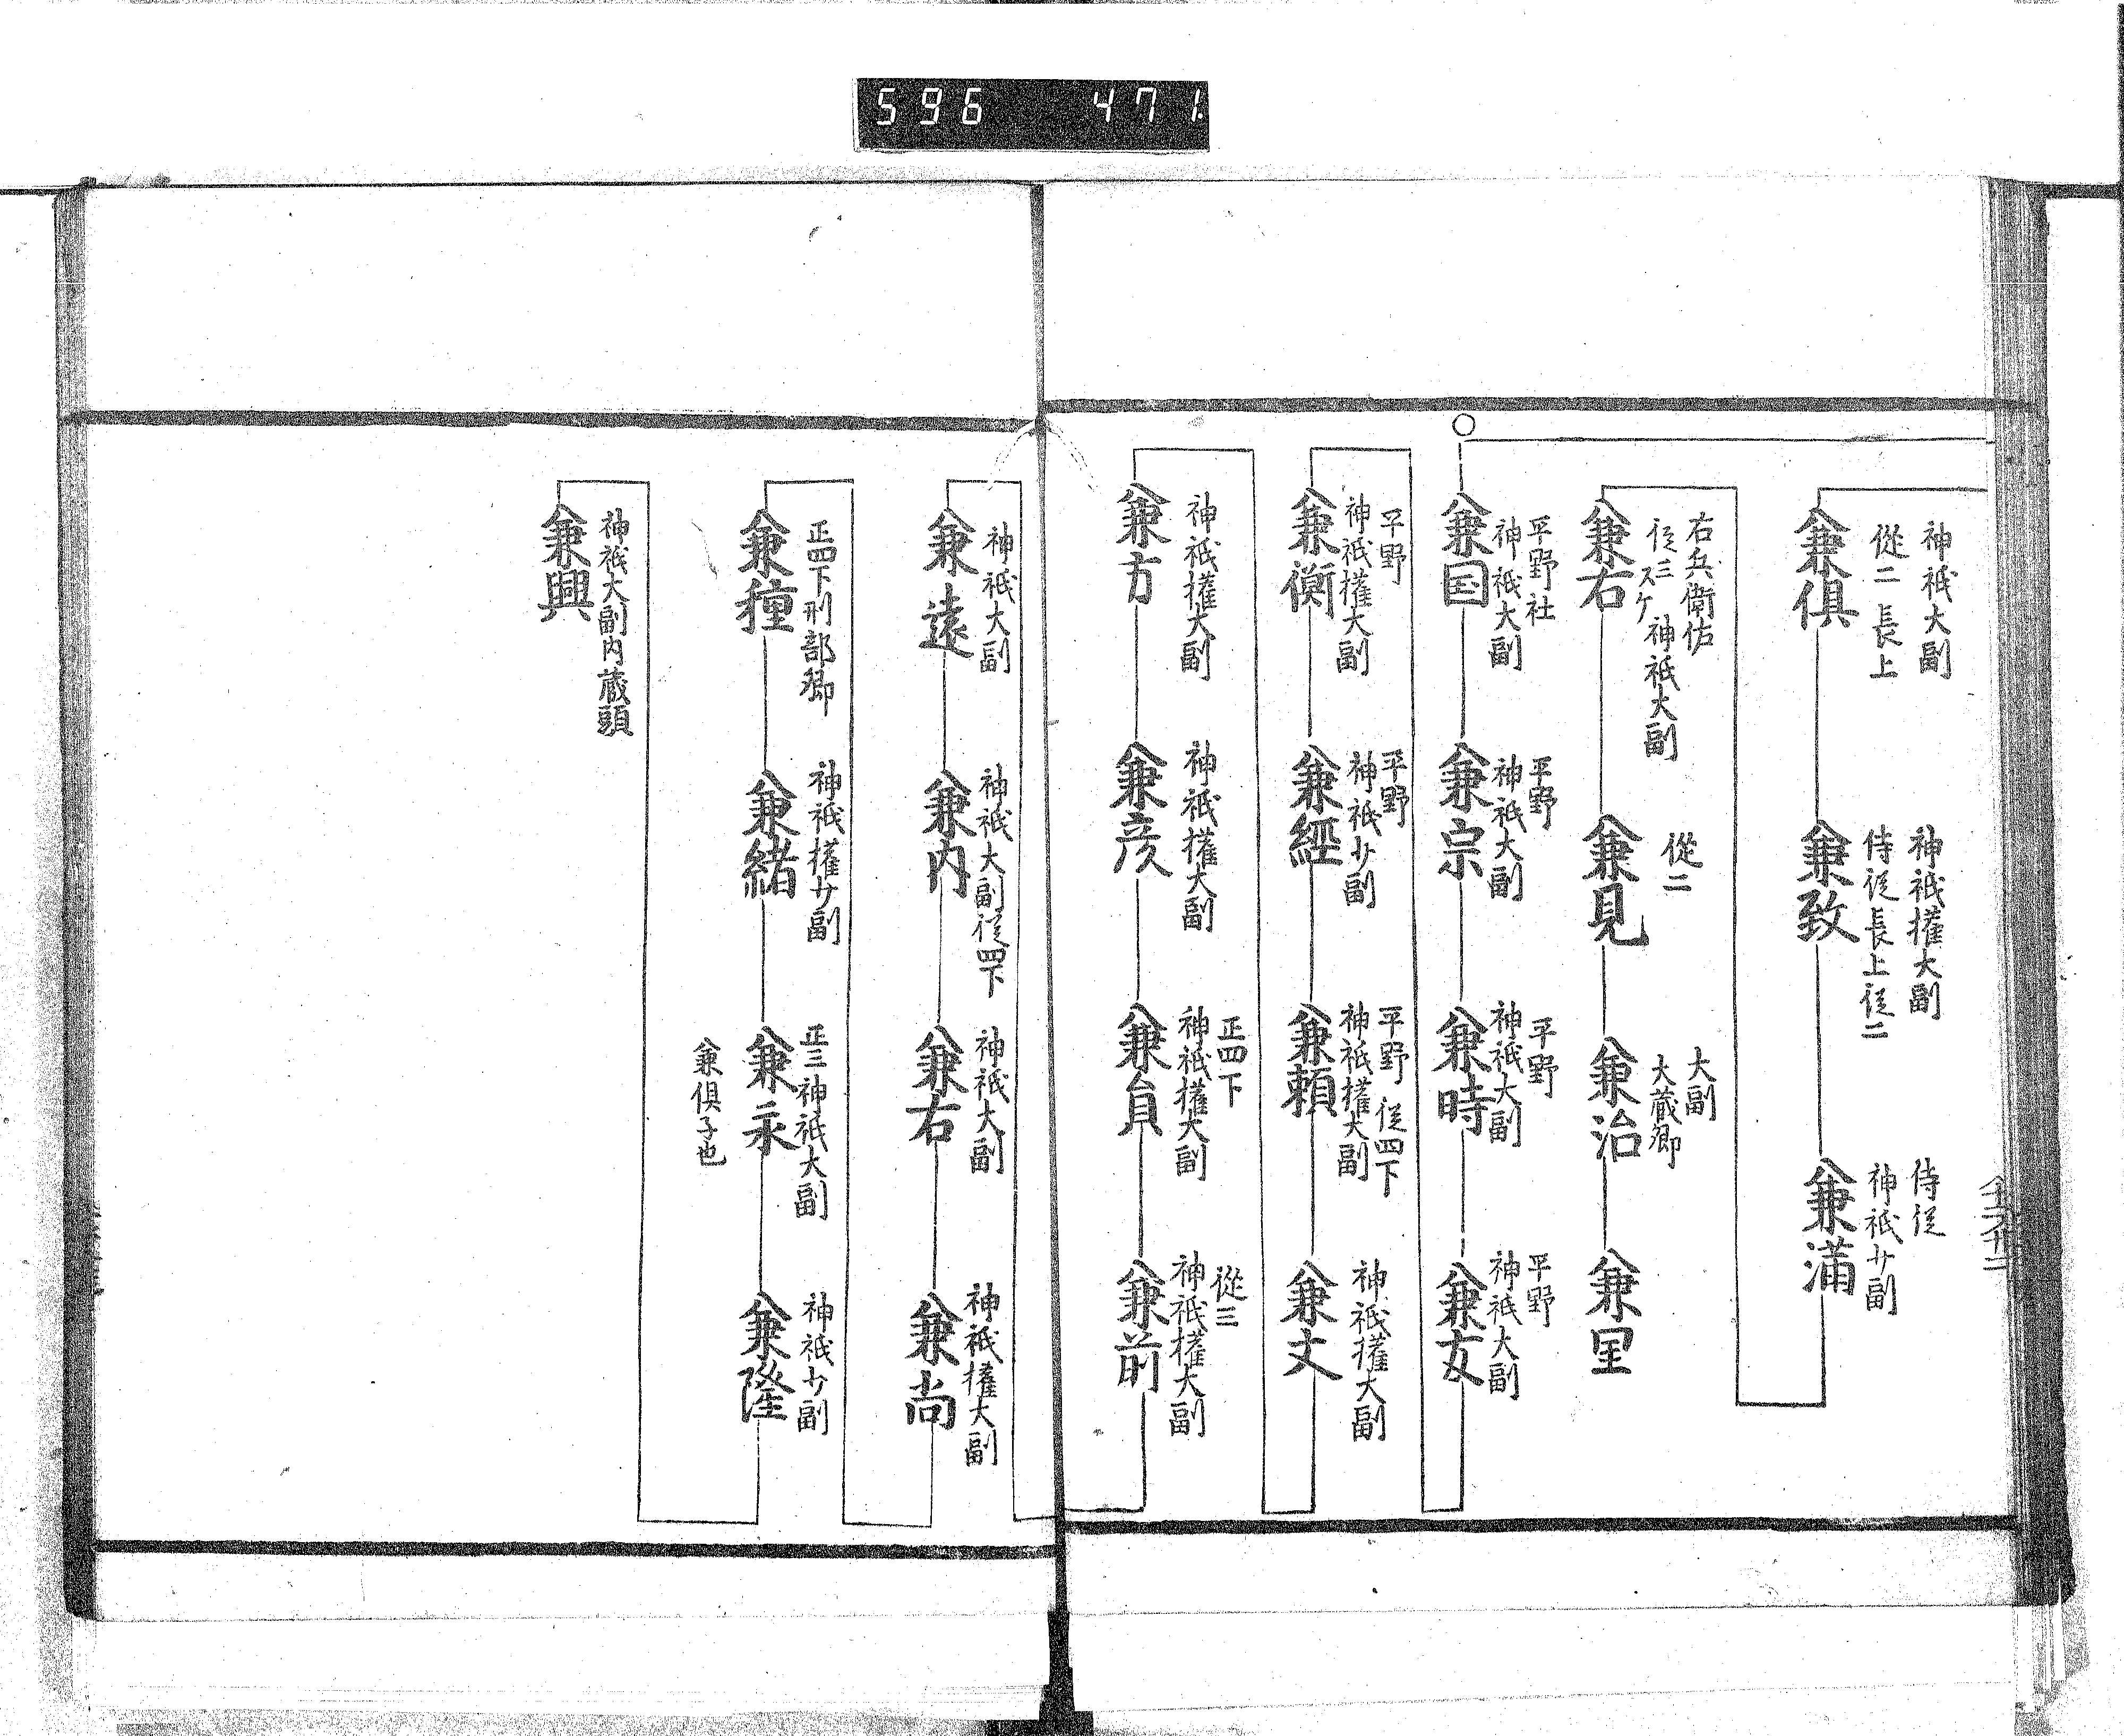 596 471
神祇大副
從二 長上
兼俱
神祇權大副
侍従長上従二
兼致
侍従
神祇少副
兼満
右兵衛佐
従三 スケ 神祇大副
兼右
從二
兼見
大副
大蔵卿
兼治
兼里
平野社
神祇大副
兼国
平野
神祇大副
兼宗
平野
神祇大副
兼時
平野
神祇大副
兼友
平野
神祇權大副
兼衡
平野
神祇少副
兼經
平野 従四下
神祇權大副
兼頼
神祇權大副
兼文
神祇權大副
兼方
神祇權大副
兼彦
正四下
神祇權大副
兼員
從三
神祇權大副
兼前
神祇大副
兼遠
神祇大副従四下
兼内
神祇大副
兼右
神祇權大副
兼尚
正四下刑部卿
兼種
神祇權少副
兼緒
正三神祇大副
兼永
兼俱子也
神祇少副
兼隆
神祇大副内蔵頭
兼興